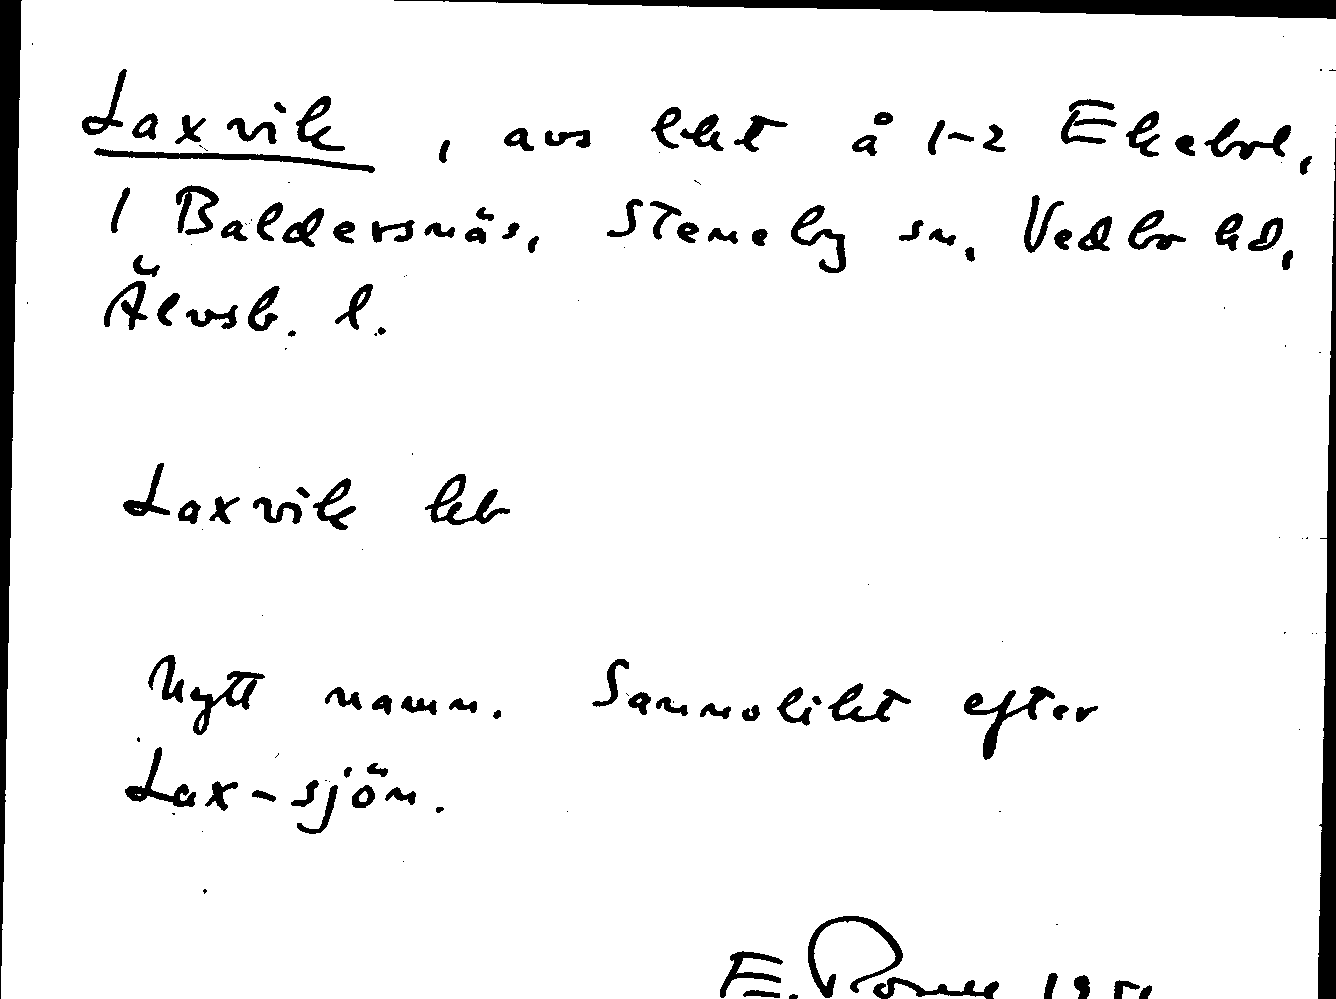 Laxvik, avs lht å 1-2 Ekebol,
1 Baldersnäs, Steneby sn, Vedbo hd,
Älvsb. l.
Laxvik kb
Nytt namn. Sannolikt efter
Lax-sjön.
E.